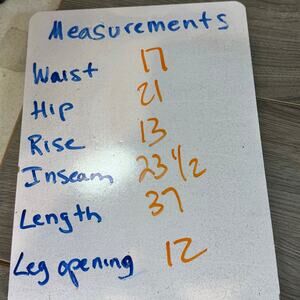 Measurements
Waist 17
Hip 21
Rise 13
Inseam 23 1/2
Length 37
Leg opening 12